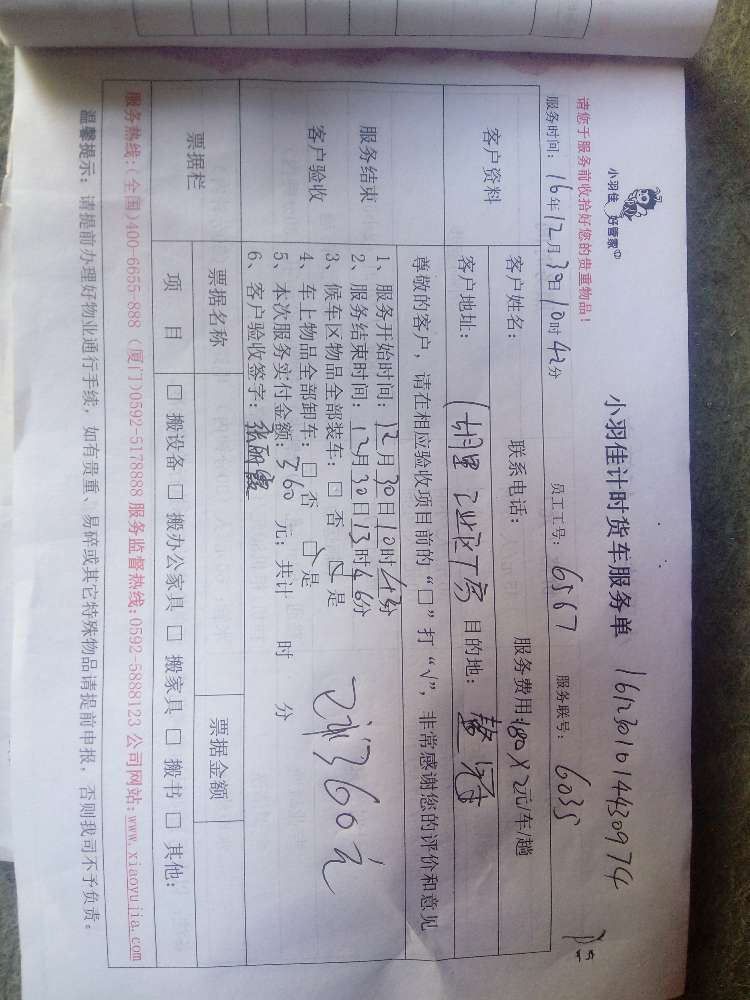 小羽佳 好管家
小羽佳计时货车服务单 1612301014430974
请您于服务前收拾好您的贵重物品！
服务时间：16年12月30日10时42分 员工工号：6567 服务联号：6035
客户资料
客户姓名： 联系电话： 服务费用：180×2元/车/趟
客户地址： 目的地：
尊敬的客户，请在相应验收项目前的“□”打“√”，非常感谢您的评价和意见
服务结束
客户验收
1、服务开始时间：12月30日10时43分
2、服务结束时间：12月30日13时46分
3、候车区物品全部装车：□ 否 ☑ 是
4、车上物品全部卸车：□ 否 ☑ 是
5、本次服务实付金额：360 元；共计 时 分
6、客户验收签字：
360元
票据栏
票据名称 票据金额
项 目 □ 搬设备 □ 搬办公家具 □ 搬家具 □ 搬书 □ 其他：
服务热线：(全国)400-6655-888 (厦门)0592-5178888 服务监督热线：0592-5888123 公司网站：www.xiaoyujia.com
温馨提示：请提前办理好物业通行手续，如有贵重、易碎或其它特殊物品请提前申报，否则我司不予负责。